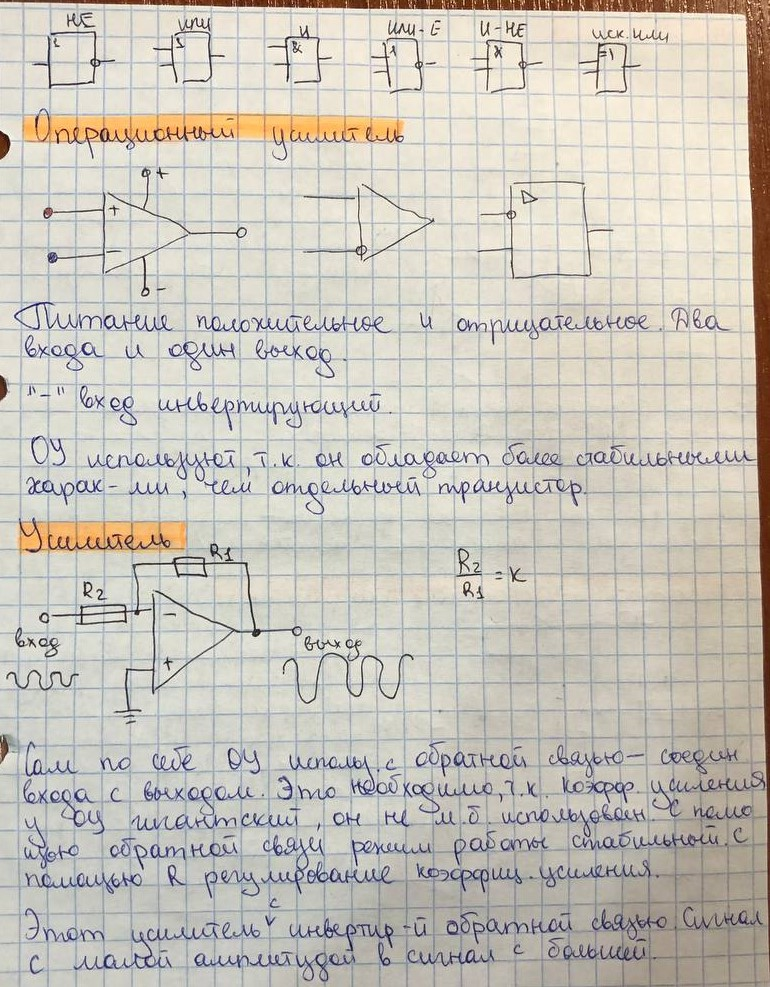 НЕ ИЛИ И ИЛИ-Е И-НЕ ИСК.ИЛИ
1 1 & 1 & =1
Операционный усилитель
+
+
-
-
Питание положительное и отрицательное. Два
входа и один выход.
"-" вход инвертирующий.
ОУ используют, т.к. он обладает более стабильными
харак-ми, чем отдельный транзистор.
Усилитель
R1
R2
R2/R1 = K
-
+
вход
выход
Сам по себе ОУ использ. с обратной связью - соедин
входа с выходом. Это необходимо, т.к. коэфф. усиления
у ОУ гигантский, он не м.б. использован. С помо
щью обратной связи режим работы стабильный. С
помощью R регулирование коэффиц. усиления.
с
Этот усилитель инвертир-й обратной связью. Сигнал
с малой амплитудой в сигнал с большей.